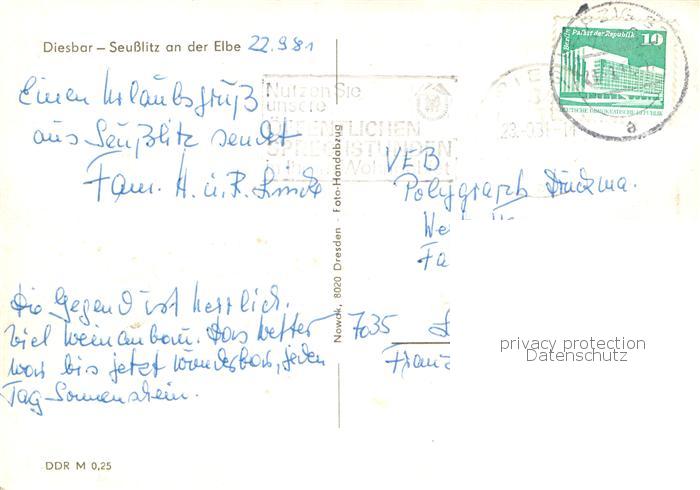 Diesbar – Seußlitz an der Elbe 22.9.81
Einen Urlaubsgruß
aus Seußlitz sendet
Fam. H. u. R.
Die Gegend ist herrlich.
viel Weinanbau. Das Wetter
war bis jetzt wunderbar, jeden
Tag Sonnenschein.
DDR M 0,25
Nowak, 8020 Dresden - Foto-Handabzug
Nutzen Sie
unsere
ÖFFENTLICHEN
SPRECHSTUNDEN
Berlin Palast der Republik 10
DEUTSCHE DEMOKRATISCHE REPUBLIK
a
VEB
Polygraph Druckma.
We
Fa
7035
Franz
privacy protection
Datenschutz